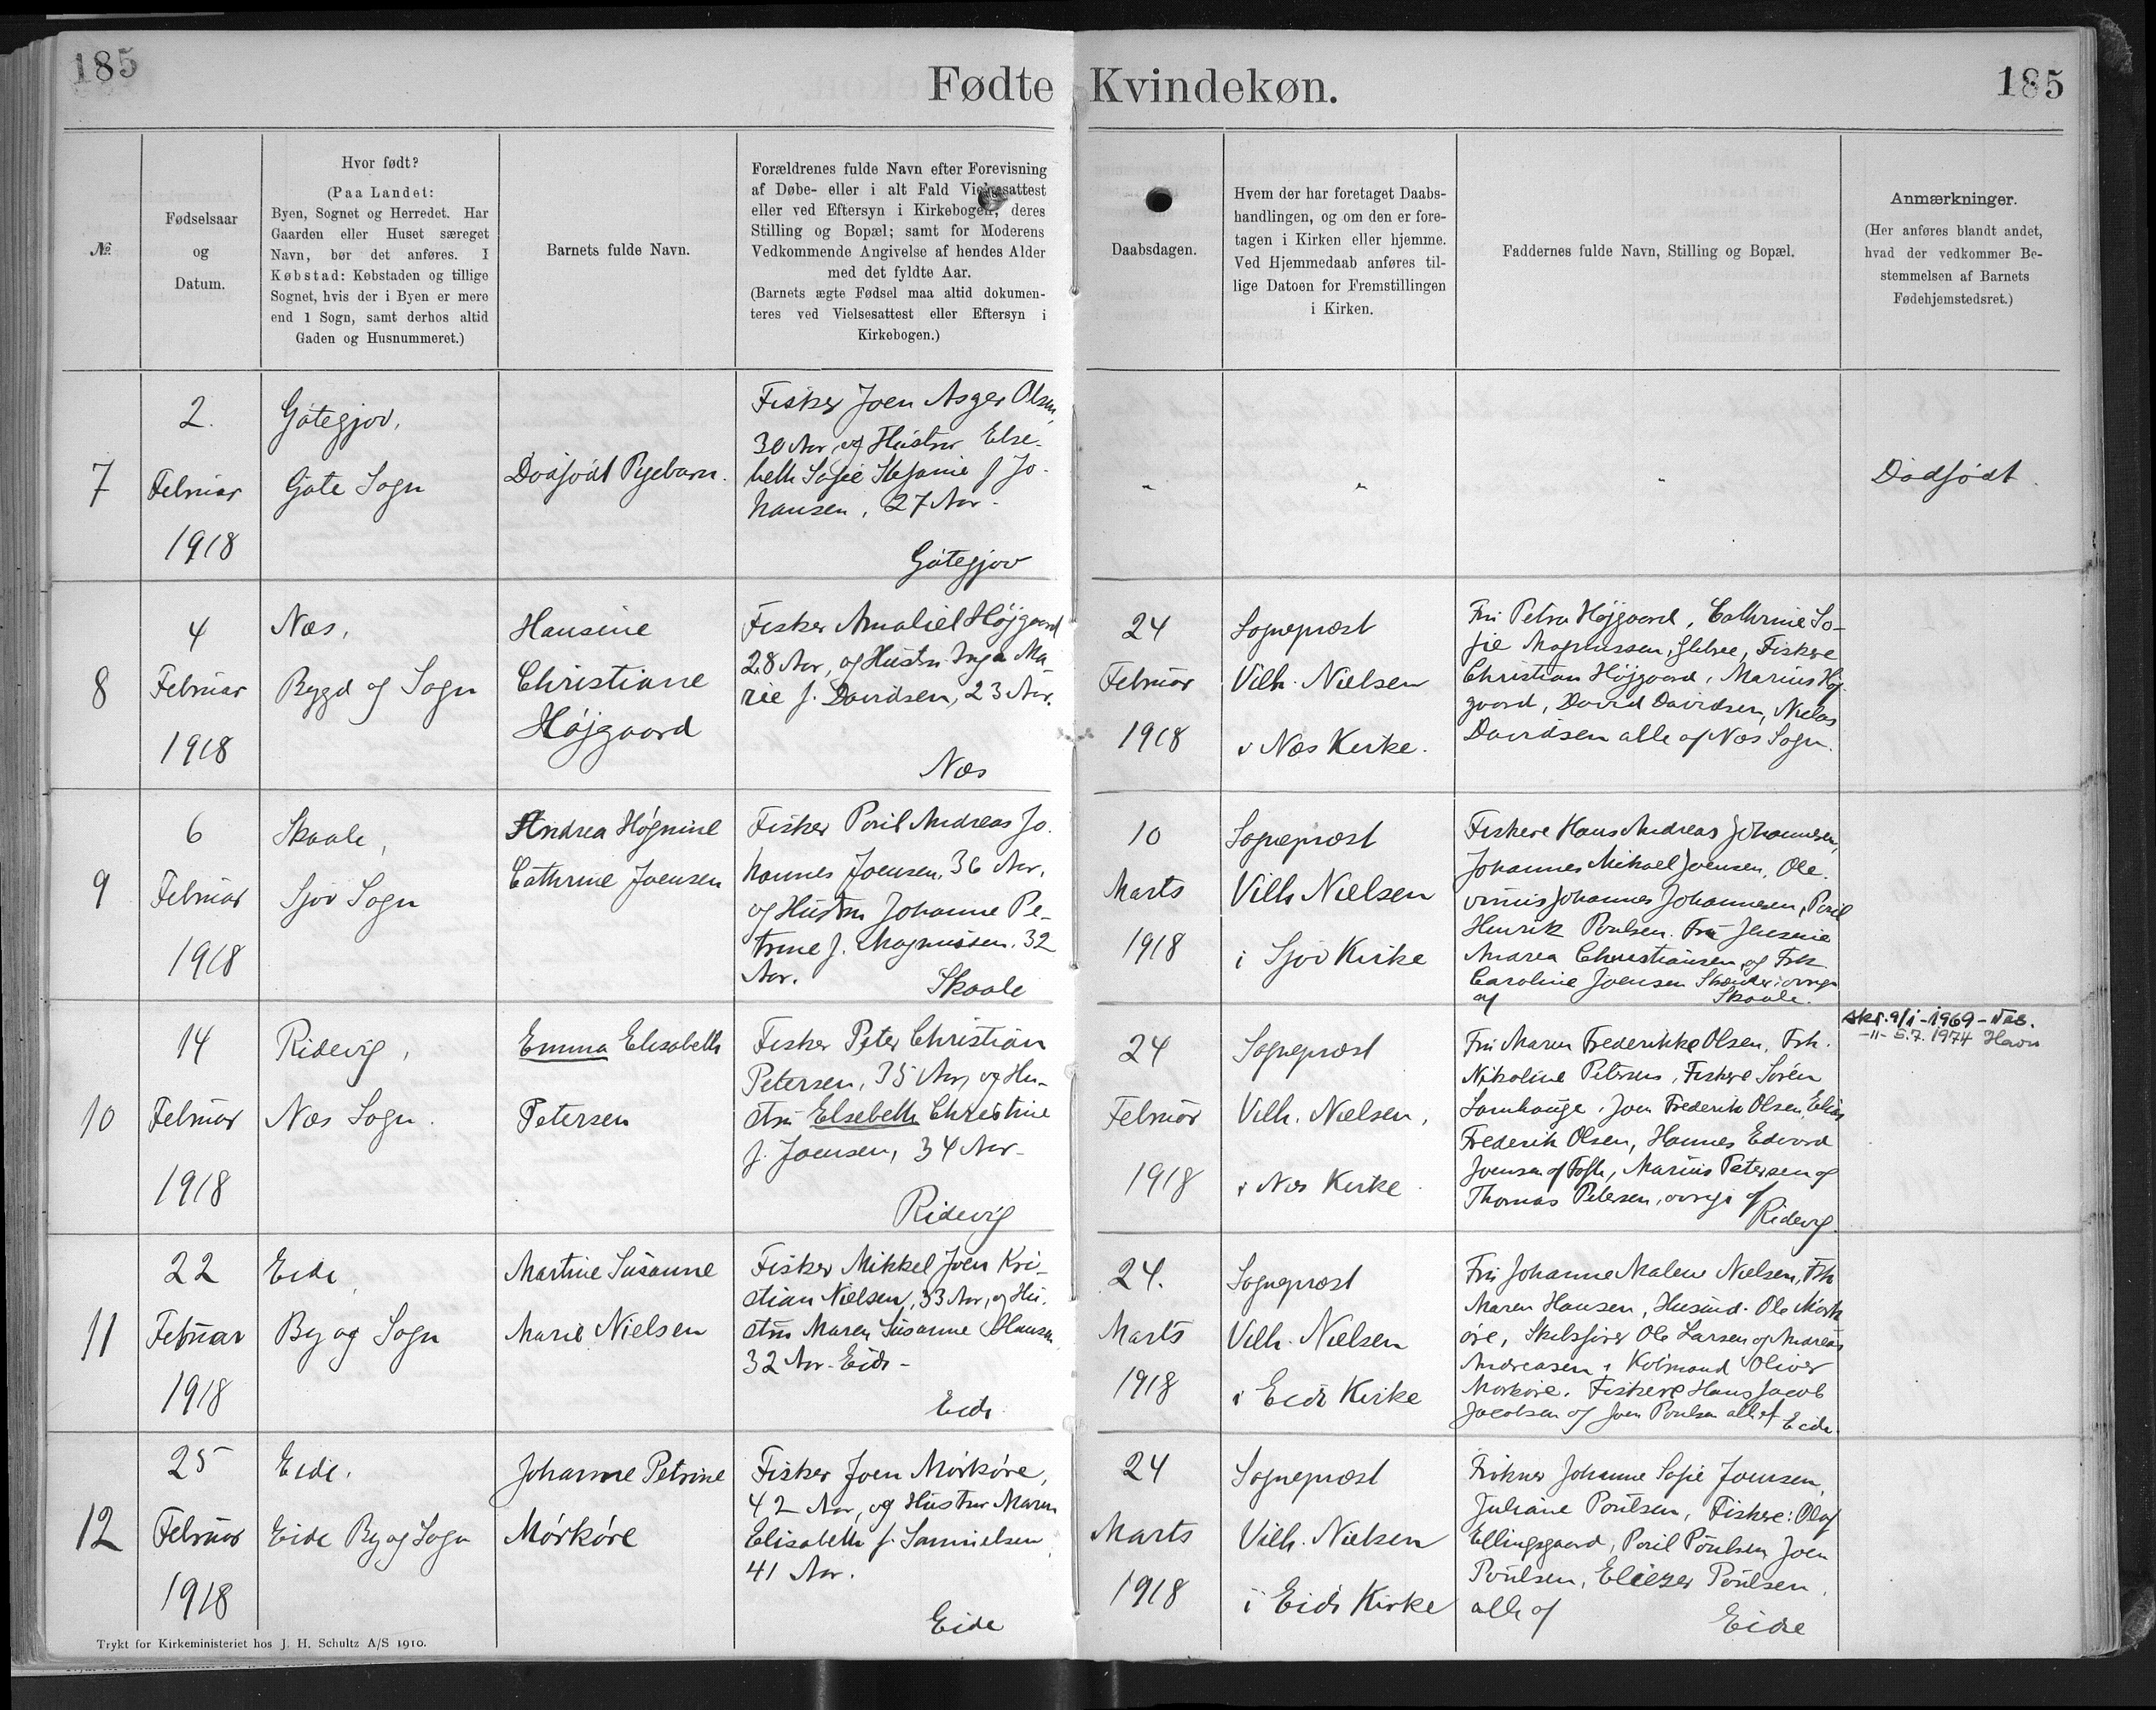 185
Fødte Kvindekøn.
185
№
Fødselsaar
og
Datum.
Hvor født?
(Paa Landet:
Byen, Sognet og Herredet. Har
Gaarden eller Huset særeget
Navn, bør det anføres. I
Købstad: Købstaden og tillige
Sognet, hvis der i Byen er mere
end 1 Sogn, samt derhos altid
Gaden og Husnummeret.)
Barnets fulde Navn.
Forældrenes fulde Navn efter Forevisning
af Døbe- eller i alt Fald Vielsesattest
eller ved Eftersyn i Kirkebogen, deres
Stilling og Bopæl; samt for Moderens
Vedkommende Angivelse af hendes Alder
med det fyldte Aar.
(Barnets ægte Fødsel maa altid dokumen-
teres ved Vielsesattest eller Eftersyn i
Kirkebogen.)
Daabsdagen.
Hvem der har foretaget Daabs-
handlingen, og om den er fore-
tagen i Kirken eller hjemme.
Ved Hjemmedaab anføres til-
lige Datoen for Fremstillingen
i Kirken.
Faddernes fulde Navn, Stilling og Bopæl.
Anmærkninger.
(Her anføres blandt andet,
hvad der vedkommer Be-
stemmelsen af Barnets
Fødehjemstedsret.)
7
2.
Februar
1918
Gøtegjov,
Gøte Sogn
Dødfødt Pigebarn.
Fisker Joen Asger Olsen,
30 Aar, og Hustru Else-
beth Sofie Stefanie f Jo-
hansen, 27 Aar.
Gøtegjov
"
"
"
Dødfødt.
8
4
Februar
1918
Næs,
Bygd og Sogn
Hansine
Christiane
Højgaard
Fisker Amaliel Højgaard
28 Aar, og Hustru Inga Ma-
rie f. Davidsen, 23 Aar.
Næs
24
Februar
1918
Sognepræst
Vilh. Nielsen
i Næs Kirke.
Fru Petra Højgaard, Cathrine So-
fie Magnussen, Fiskere
Christian Højgaard, Marius Høj-
gaard, David Davidsen, Niclas
Davidsen alle af Næs Sogn.
9
6
Februar
1918
Skaale,
Sjov Sogn
Andrea Høgnine
Cathrine Joensen
Fisker Poul Andreas Jo-
hannes Joensen, 36 Aar,
og Hustru Johanne Pe-
trine f. Magnussen, 32
Aar.
Skaale
10
Marts
1918
Sognepræst
Vilh Nielsen
i Sjov Kirke
Fiskere Hans Andreas Johannesen,
Johannes Mikael Joensen, Ole-
vinus Johannes Johannesen, Poul
Henrik Poulsen. Fru Jensine
Andrea Christiansen og Frk.
Caroline Joensen
af Skaale.
10
14
Februar
1918
Ridevig,
Næs Sogn.
Emma Elisabeth
Petersen
Fisker Peter Christian
Petersen, 35 Aar, og Hu-
stru Elsebeth Christine
f. Joensen, 34 Aar.
Ridevig
24
Februar
1918
Sognepræst
Vilh. Nielsen,
i Næs Kirke
Fru Maren Frederikke Olsen, Frk.
Nikoline Petersen, Fiskere Søren
Lamhauge, Joen Frederik Olsen, Elias
Frederik Olsen, Hannes Edvard
Joensen af Toft, Marius Petersen og
Thomas Petersen, øvrige af
Ridevig.
skr. 9/1-1969 - Næs.
-"- 5.7.1974 Havn
11
22
Februar
1918
Eide
By og Sogn
Martine Susanne
Marie Nielsen
Fisker Mikkel Joen Kri-
stian Nielsen, 33 Aar, og Hu-
stru Maren Susanne Hansen
32 Aar. Eide -
Eide
24.
Marts
1918
Sognepræst
Vilh. Nielsen
i Eide Kirke
Fru Johanne Malene Nielsen, Frk
Maren Hansen, Husmd. Ole Mørk
øre, Skibsfører Ole Larsen og Andreas
Andreasen, Købmand Oliver
Mørkøre, Fiskere Hans Jacob
Jacobsen og Joen Poulsen alle af Eide.
12
25
Februar
1918
Eide,
Eide By og Sogn
Johanne Petrine
Mørkøre
Fisker Joen Mørkøre,
42 Aar, og Hustru Maren
Elisabeth f. Samuelsen
41 Aar.
Eide
24
Marts
1918
Sognepræst
Vilh. Nielsen
i Eide Kirke
Frøkner Johanne Sofie Joensen,
Juliane Poulsen, Fiskere: Olaf
Ellingsgaard, Poul Poulsen Joen
Poulsen, Eliezer Poulsen,
alle af Eide
Trykt for Kirkeministeriet hos J. H. Schultz A/S 1910.